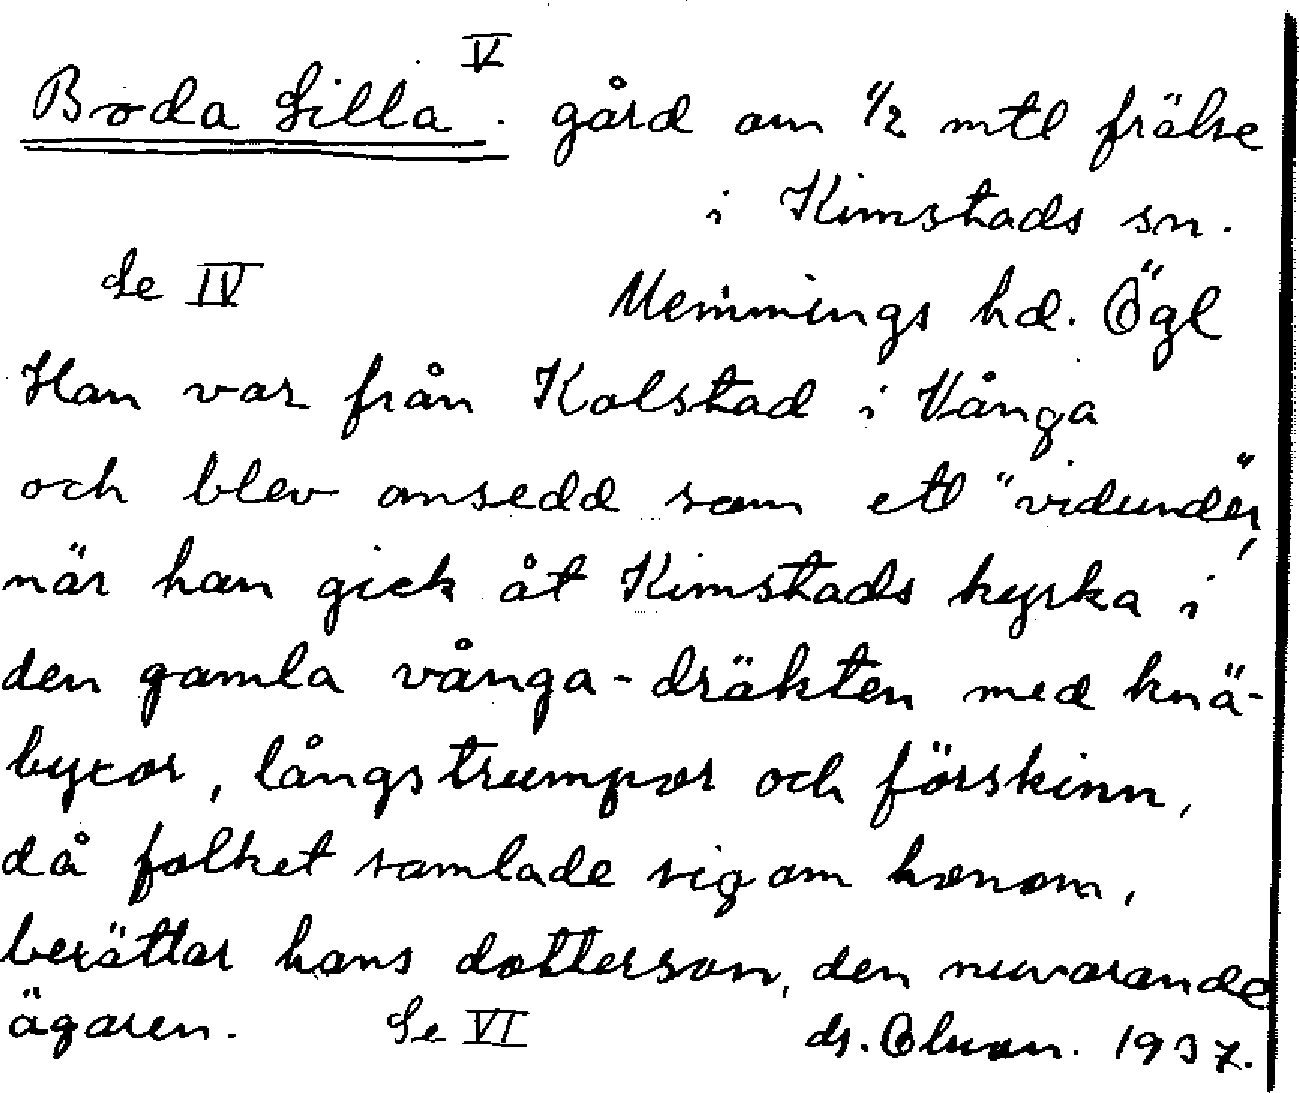 Boda Lilla V. gård om 1/2 mtl frälse
i Kimstads sn.
Se IV Memmings hd. Ögl
Han var från Kolstad i Vånga
och blev ansedd som ett "vidunder",
när han gick åt Kimstads kyrka i
den gamla vånga-dräkten med knä-
byxor, långstrumpor och förskinn,
då folket samlade sig om honom,
berättar hans dotterson, den nuvarande
ägaren. Se VI ds. 1937.